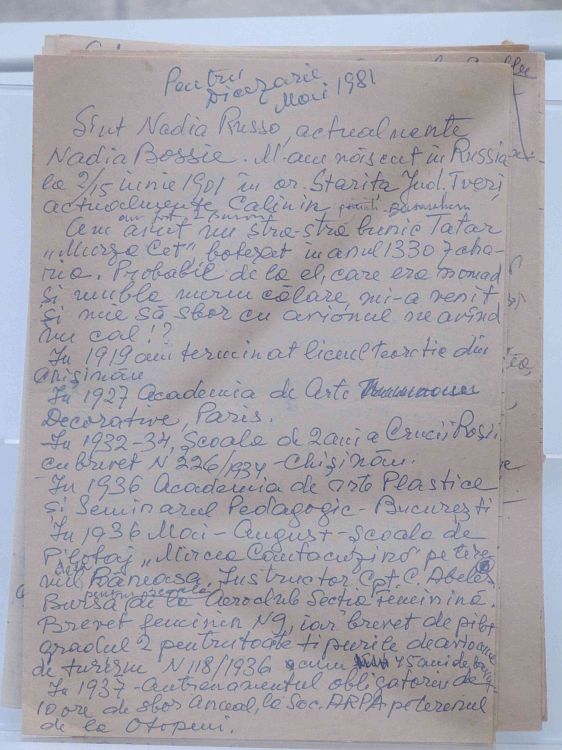 Pentru
Dicezarie
Mai 1981
Sînt Nadia Russo, actualmente
Nadia Bossie. M-am născut în Russia
la 2/15 iunie 1901 în or. Starita Jud. Tveri,
actualmente Calinin
am fot
Am avut un stră-stră bunic Tatar
„Murza Cet" botezat în anul 1330 Zaha-
ria. Probabil de la el, care era nomad
și umbla numai călare, mi-a venit
și mie să sbor cu avionul neavînd
un cal!?
In 1919 am terminat liceul teoretic din
Chișinău
In 1927 Academia de Arte
Decorative, Paris.
In 1932-34, Școala de 2 ani a Crucii Roșii
cu brevet N 226/1934 - Chișinău.
In 1936 Academia de arte Plastice
și Seminarul Pedagogic - București
In 1936 Mai - August - Școala de
Pilotaj „Mircea Cantacuzino" pe tere-
nul Băneasa, Instructor Cpt. C. Abeles
pentru
Bursa de la Aeroclub Secția Feminină.
Brevet feminin N 9, iar brevet de pilot
gradul 2 pentru toate tipurile de avioane
de turism N 118/1936 acum 45 ani de
In 1937 - antrenamentul obligatoriu de
10 ore de sbor anual, la Soc. ARPA pe terenul
de la Otopeni.